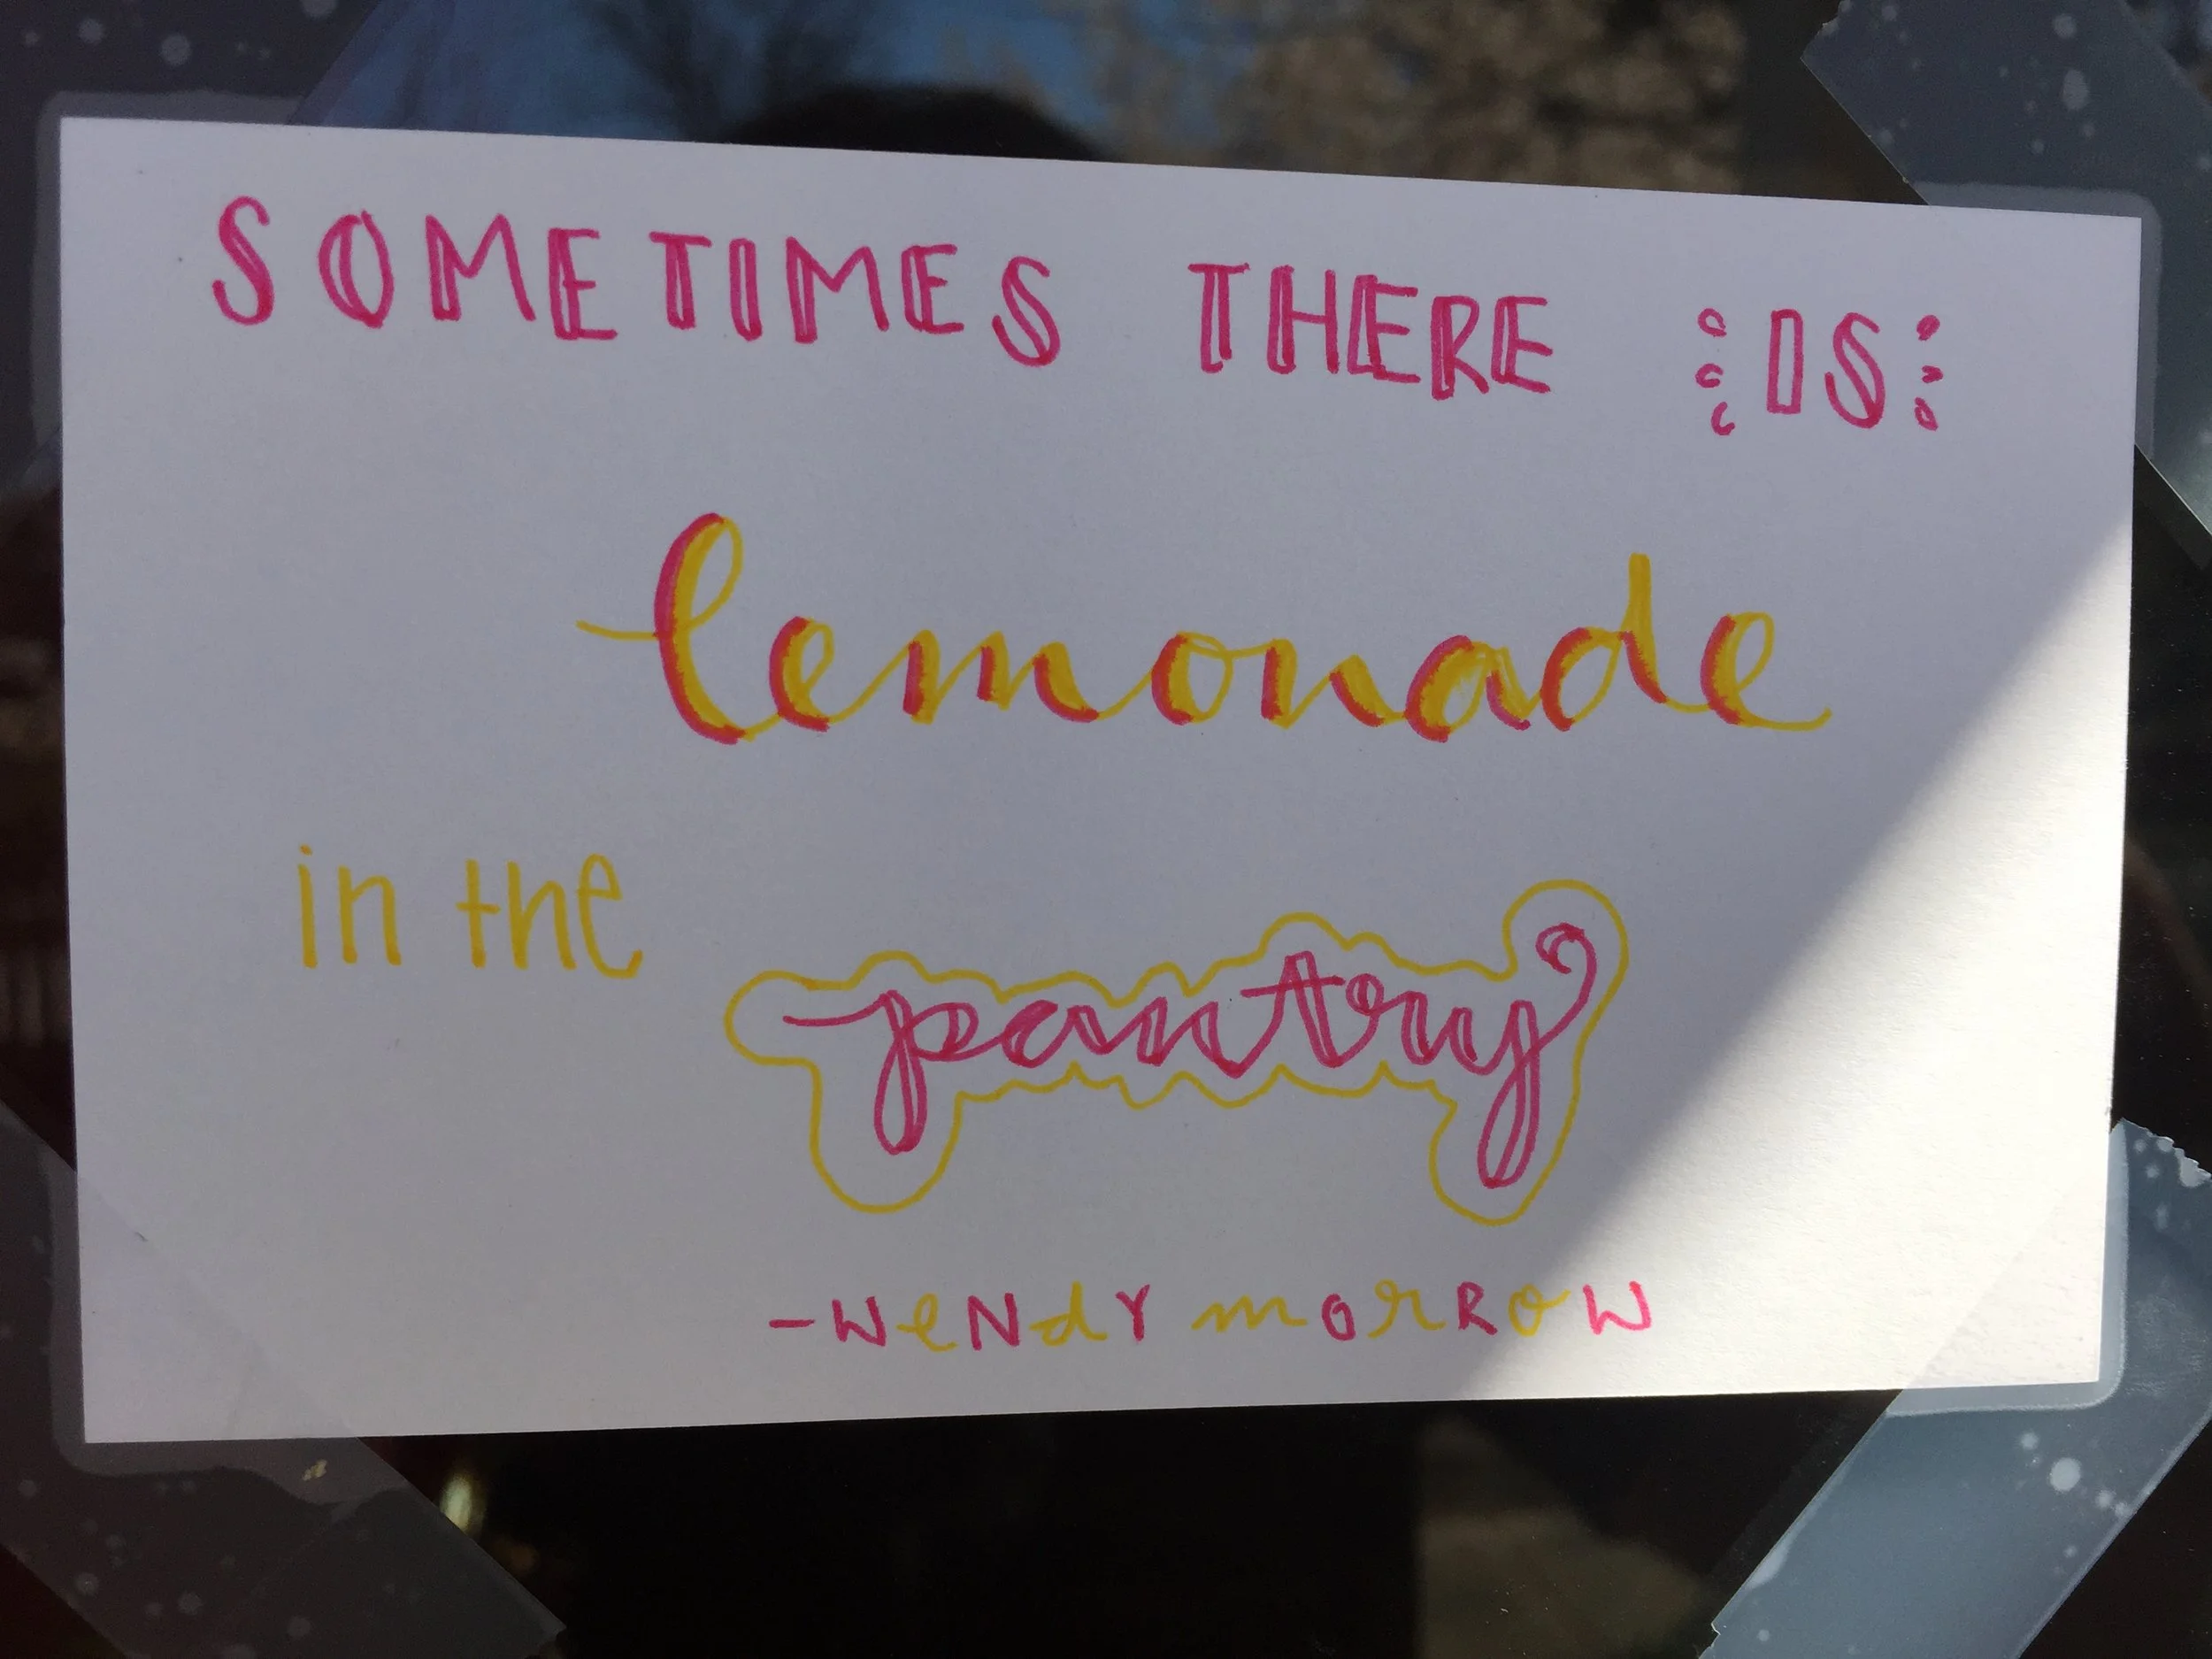 SOMETIMES THERE IS
lemonade
in the pantry
-WeNdY morRoW